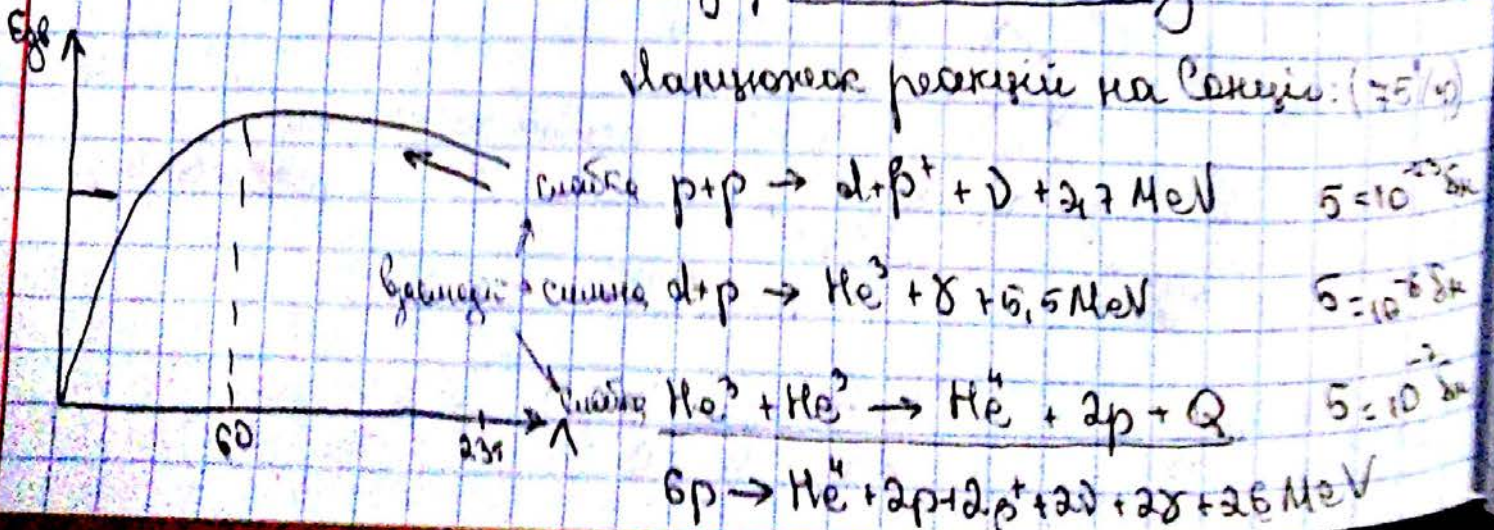 Eзв
Ланцюжок реакцій на Сонці: (75%)
слабка p+p → d+β⁺ + ν + 2,7 MeV σ=10⁻²³ бн
взаємодія сильна d+p → He³ + γ + 5,5 MeV σ=10⁻⁶ бн
слабка He³ + He³ → He⁴ + 2p + Q
60 A
6p → He⁴ + 2p + 2β⁺ + 2ν + 2γ + 26 MeV